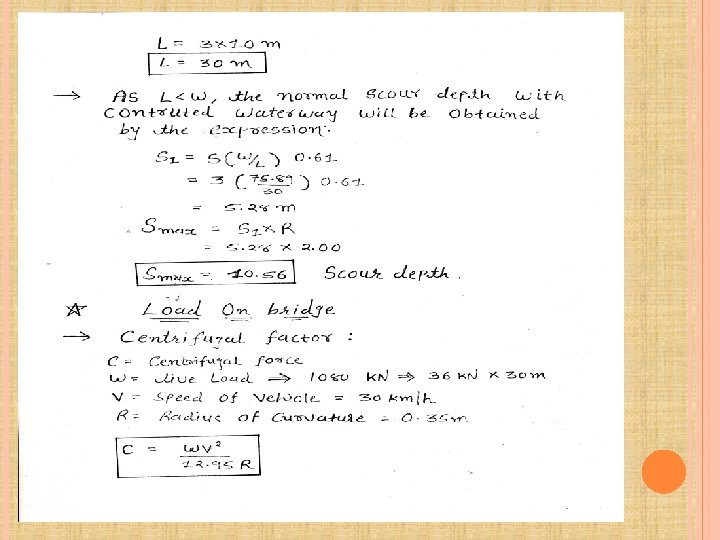 L = 3×10 m
L = 30 m
→ AS L<W, the normal scour depth with
contruted waterway will be obtained
by the expression.
S1 = S (W/L) 0.61
= 3 (75.89/30) 0.61
= 5.28 m
Smax = S1×R
= 5.28 × 2.00
Smax = 10.56 Scour depth.
☆ Load On bridge
→ Centrifugal factor :
C = Centrifugal force
W = Live Load ⇒ 1080 KN ⇒ 36 KN × 30m
V = Speed of Vehicle = 30 km/h
R = Radius of Curvature = 0.35m
C = WV²/12.95 R